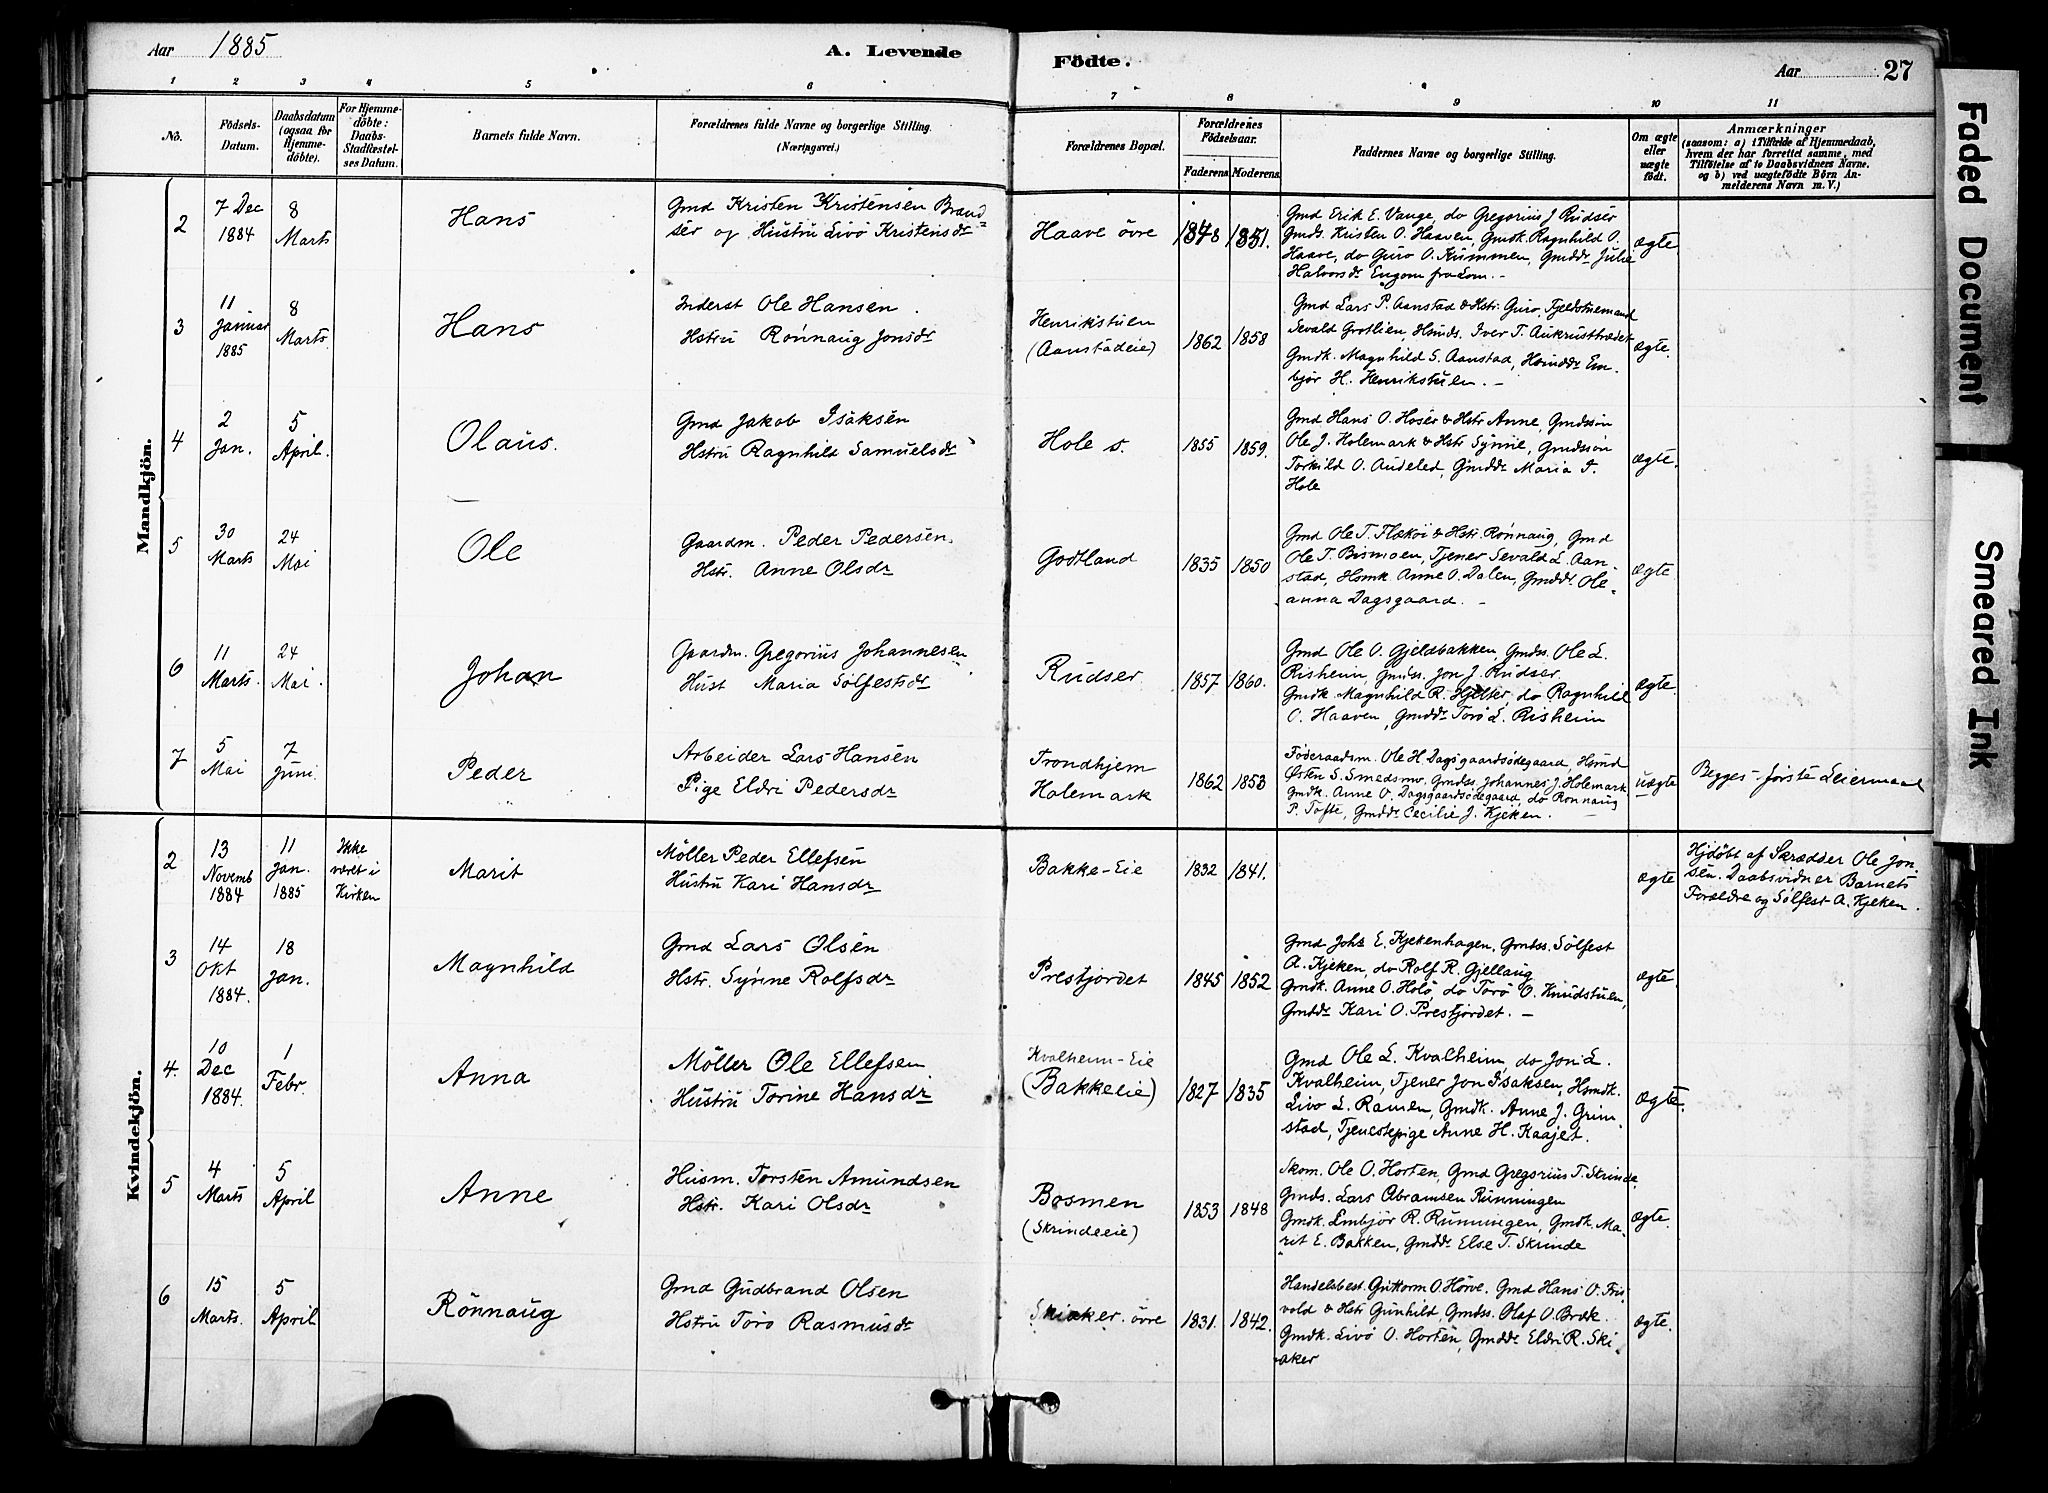 Aar 1885
A. Levende
Födte.
Aar
27
1 2 3 4 5 6 7 8 9 10 11
No.
Födsels-
Datum.
Daabsdatum
(ogsaa for
Hjemme-
döbte).
For Hjemme-
döbte:
Daabs-
Stadfæstel-
ses Datum.
Barnets fulde Navn.
Forældrenes fulde Navne og borgerlige Stilling.
(Næringsvei.)
Forældrenes Bopæl.
Forældrenes
Födselsaar.
Faderens. Moderens.
Faddernes Navne og borgerlige Stilling.
Om ægte
eller
uægte
födt.
Anmærkninger
(saasom: a) i Tilfælde af Hjemmedaab,
hvem der har forrettet samme, med
Tilföielse af to Daabsvidners Navne.
og b) ved uægtefödte Börn An-
melderens Navn m. V.)
Mandkjön.
2
7 Dec
1884
8
Marts
Hans
Gmd Kristen Kristensen Brand-
sér og Hustru Livö Kristensdr
Haave övre
1848 1851.
Gmd Erik E. Vange, do Gregorius J Rudsér
Gmds. Kristen O. Haaven, Gmdk. Ragnhild O.
Haave, do Guro O. Kummen, Gmddr Julie
Halvorsdr Engom fra Lom. -
ægte
3
11
Januar
1885
8
Marts
Hans
Inderst Ole Hansen
Hstru Rönnaug Jonsdr
Henrikstuen
(Aanstadeie)
1862 1858
Gmd Lars P. Aanstad & Hstr. Guro, Fjeldstuemand
Sevald Grotlien, Hsmds. Iver T. Aukrusttrædet
Gmdk. Magnhild S. Aanstad, Hsmddr Em-
björ H. Henrikstuen. -
ægte.
4
2
Jan.
5
April.
Olaus.
Gmd Jakob Isaksén
Hstru Ragnhild Samuelsdr
Hole s.
1855 1859.
Gmd Hans O. Hosér & Hstr Anne, Gmdssön
Ole J. Holemark & Hstr Synne, Gmdssön
Torkild O. Audeled, Gmddr Maria I.
Hole
ægte.
5
30
Marts
24
Mai
Ole
Gaardm. Peder Pedersén.
Hstr. Anne Olsdr
Godtland
1835 1850
Gmd Ole T. Flæköi & Hstr. Rönnaug, Gmd
Ole T. Bismoen, Tjener Sevald L. Aan-
stad, Hsmk Anne O. Dalen, Gmddr. Ole-
anna Dagsgaard. -
ægte
6
11
Marts.
24
Mai.
Johan
Gaardm. Gregorius Johannesen
Hust Maria Sölfestsdr
Rudser
1857 1860.
Gmd Ole O. Gjeldbakken, Gmds. Ole L.
Risheim, Gmds. Jon J. Rudser
Gmdk. Magnhild R. Hjeltar, do Ragnhild
O. Haaven, Gmddr Torö L. Risheim
ægte.
7
5
Mai
7
Juni.
Peder
Arbeider Lars Hansén
Pige Eldri Pedersdr
Trondhjem
Holemark
1862 1853
Föderaadsm. Ole H. Dagsgaardsödegaard, Hsmd
Østen S. Smedsmo, Gmdss, Johannes J. Holemark.
Gmdk. Anne O. Dagsgaardsödegaard, do Rönnaug
P. Tofte, Gmddr Cecilie J. Kjeken.
uægte
Begges förste Leiermaal
Kvindekjön.
2
13
Novemb
1884
11
Jan.
1885
Ikke
været i
Kirken
Marit
Möller Peder Ellefsén
Hustru Kari Hansdr
Bakke-Eie
1832 1841.
ægte
Hjdöbt af Skrædder Ole Jon-
sen. Daabsvidner Barnets
Forældre og Sölfest A. Kjeken.
3
14
Okt
1884.
18
Jan.
Magnhild
Gmd Lars Olsén
Hstr. Synne Rolfsdr
Prestjordet
1845 1852
Gmd Johs E. Kjekenhagen, Gmdss. Sölfest
A. Kjeken, do Rolf R. Gjellaug
Gmdk. Anne O. Holö, do Torö O. Knudstuen,
Gmddr Kari O. Prestjordet. -
ægte.
4.
10
Dec
1884.
1
Febr.
Anna
Möller Ole Ellefsen
Hustru Torine Hansdr
Kvalheim-Eie
(Bakkeeie)
1827 1835
Gmd Ole L. Kvalheim, do Jon L.
Kvalheim, Tjener Jon Isaksen, Hsmdk.
Livo L. Ramen, Gmdk. Anne J. Grim-
stad, Tjenestepige Anne H. Kaajet.
ægte.
5
4
Marts
5
April
Anne
Husm. Torsten Amundsen
Hstr. Kari Olsdr
Bosmen
(Skrindeeie)
1853 1848
Skom. Ole O. Horten, Gmd Gregorius T. Skrinde
Gmds. Lars Abramsen Runningen
Gmdk. Embjör R. Runningen, Gmdk. Ma-
rit E. Bakken, Gmddr Else T. Skrinde
ægte.
6
15
Marts.
5
April
Rönnaug
Gmd Gudbrand Olsen
Hstru Torö Rasmusdr
Skiaker övre
1831. 1842.
Handelsbest. Guttorm O. Hörve. Gmd Hans O. Fris-
vold & Hstr Gunhild, Gmdss. Olaf O. Bræk.
Gmdk. Livö O. Horten, Gmddr Eldri R. Ski-
aker
ægte.
Faded Document
Smeared Ink